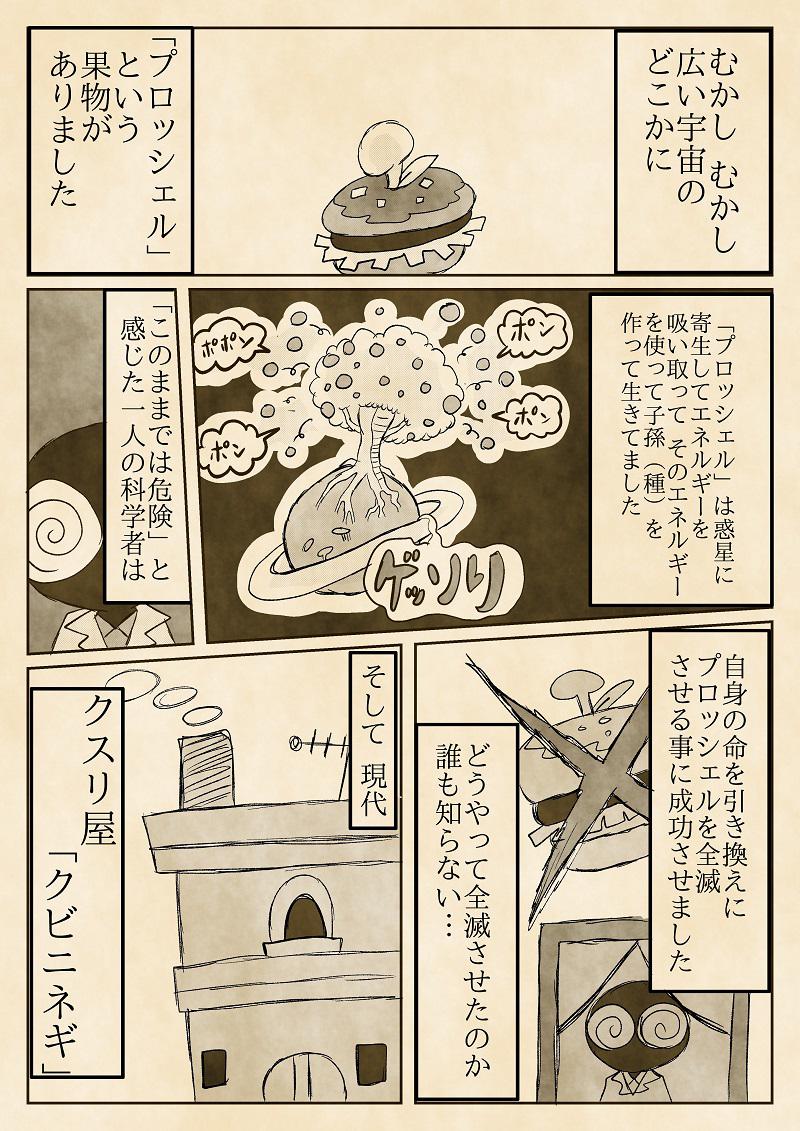 むかし むかし
広い宇宙の
どこかに
「プロッシェル」
という
果物が
ありました
「プロッシェル」は惑星に
寄生してエネルギーを
吸い取って そのエネルギー
を使って子孫（種）を
作って生きてました
ポン
ポン
ポポン
ポン
ゲッソリ
「このままでは危険」と
感じた一人の科学者は
自身の命を引き換えに
プロッシェルを全滅
させる事に成功させました
どうやって全滅させたのか
誰も知らない…
そして 現代
クスリ屋
「クビニネギ」